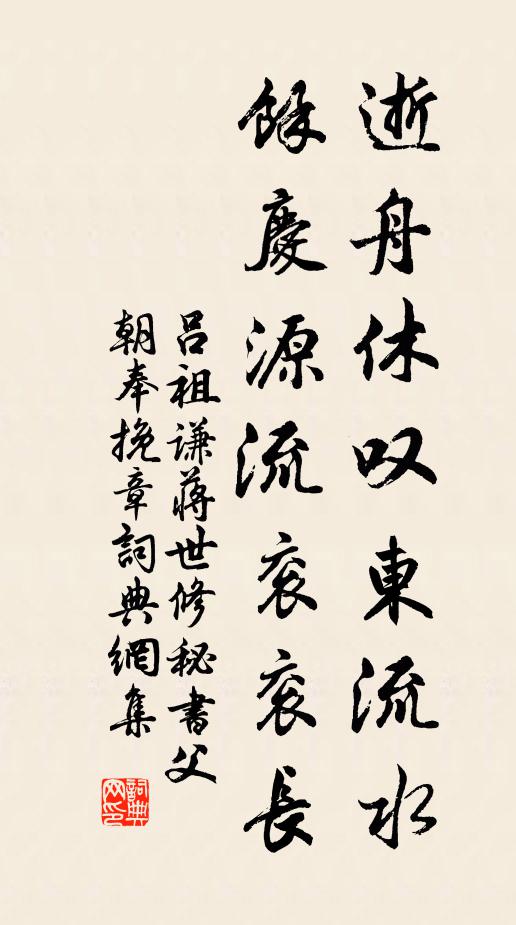 逝舟休叹東流水
餘慶源流衮衮長
吕祖谦蒋世修秘書父
朝奉挽章詞典網集
詞典網印